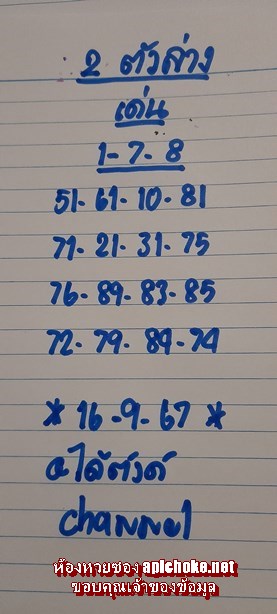 2 ตัวล่าง
เด่น
1-7-8
51-61-10-81
71-21-31-75
76-89-83-85
72-79-84-74
* 16-9-67 *
channel
ห้องหวยซอง apichoke.net
ขอบคุณเจ้าของข้อมูล